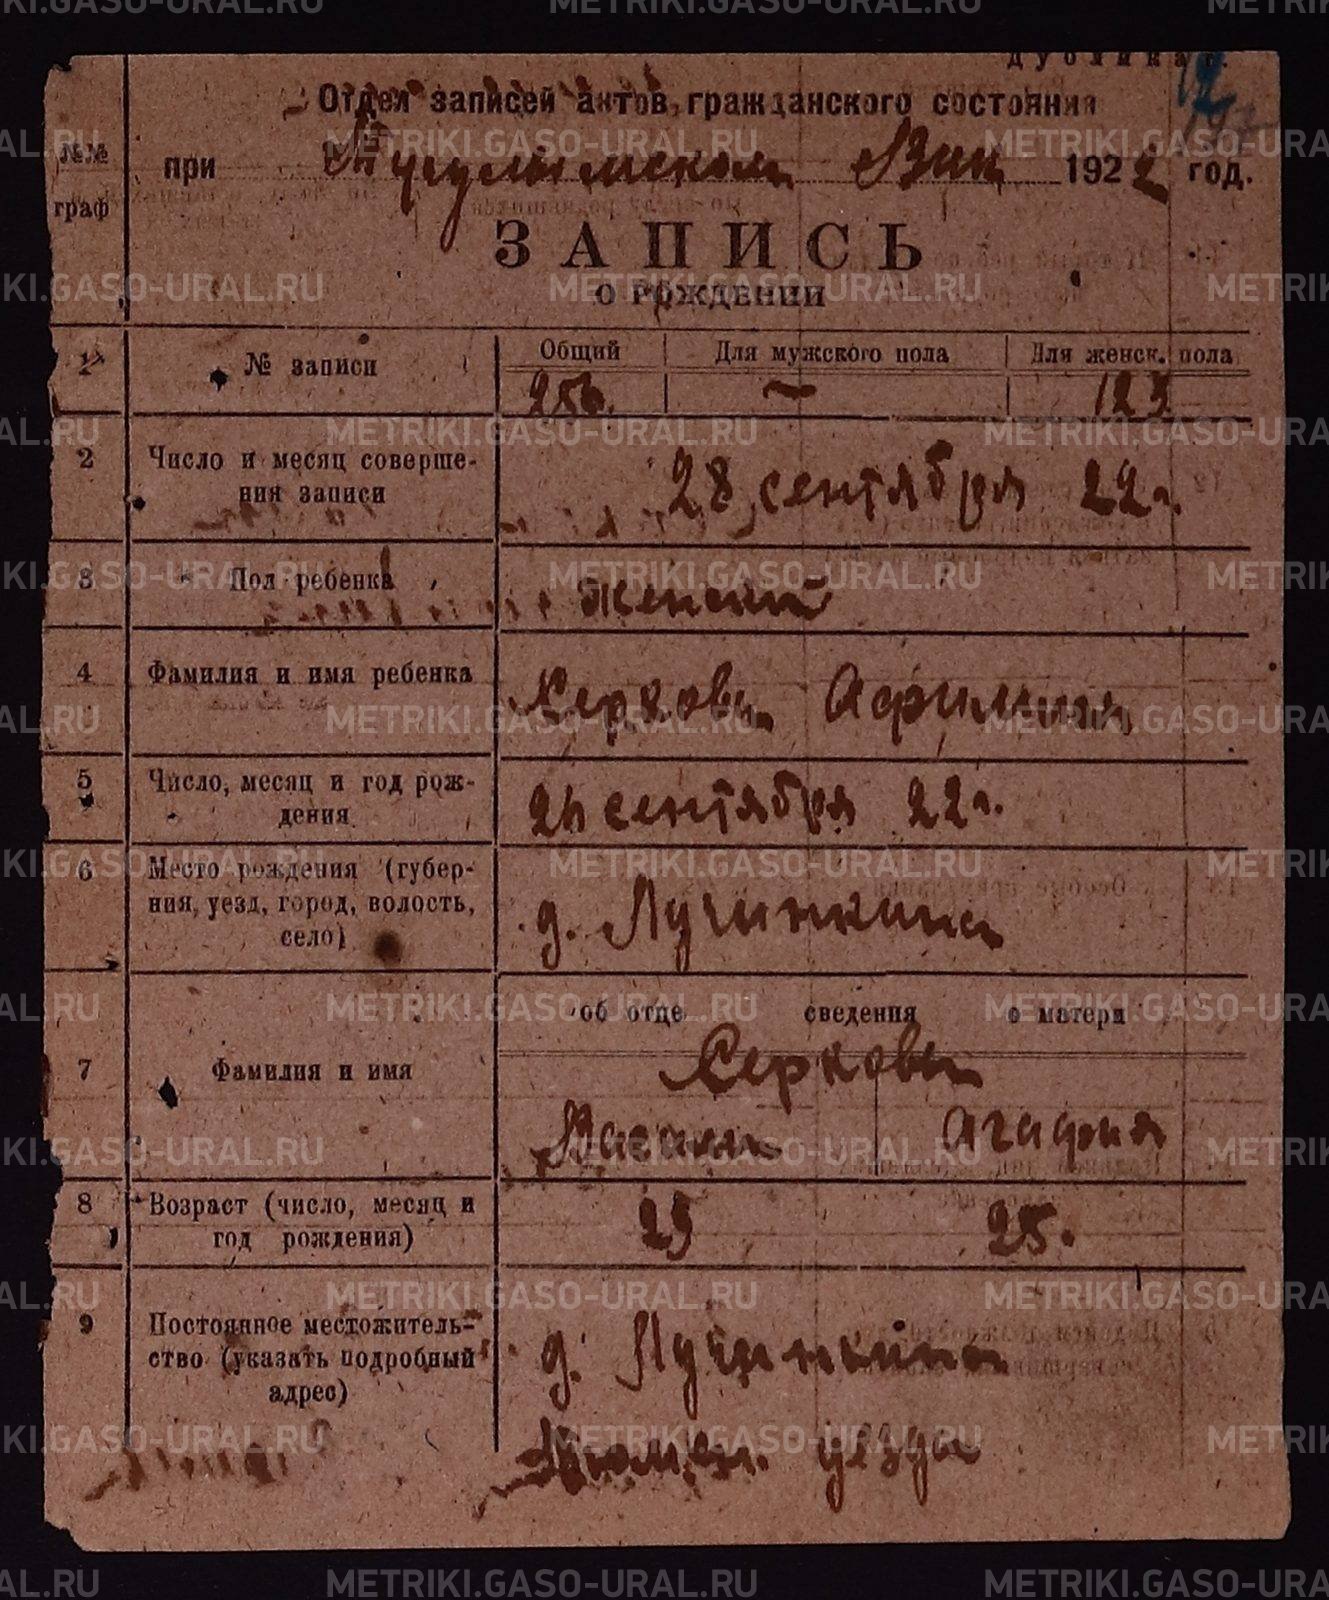 дубликат.
12
Отдел записей актов гражданского состояния
№№ граф
при Тугулымском Вик 1922 год.
ЗАПИСЬ
о рождении
1 № записи
Общий Для мужского пола Для женск. пола
256. — 123
2 Число и месяц соверше-
ния записи
28 сентября 22 г.
3 Пол ребенка
женский
4 Фамилия и имя ребенка
Серкова Афимия
5 Число, месяц и год рож-
дения
26 сентября 22 г.
6 Место рождения (губер-
ния, уезд, город, волость,
село)
д. Лучинкина
об отце сведения о матери
7 Фамилия и имя
Серковы
Агафия
8 Возраст (число, месяц и
год рождения)
25 25.
9 Постоянное местожитель-
ство (указать подробный
адрес)
д. Лучинкина
Тюмен. уезда
METRIKI.GASO-URAL.RU